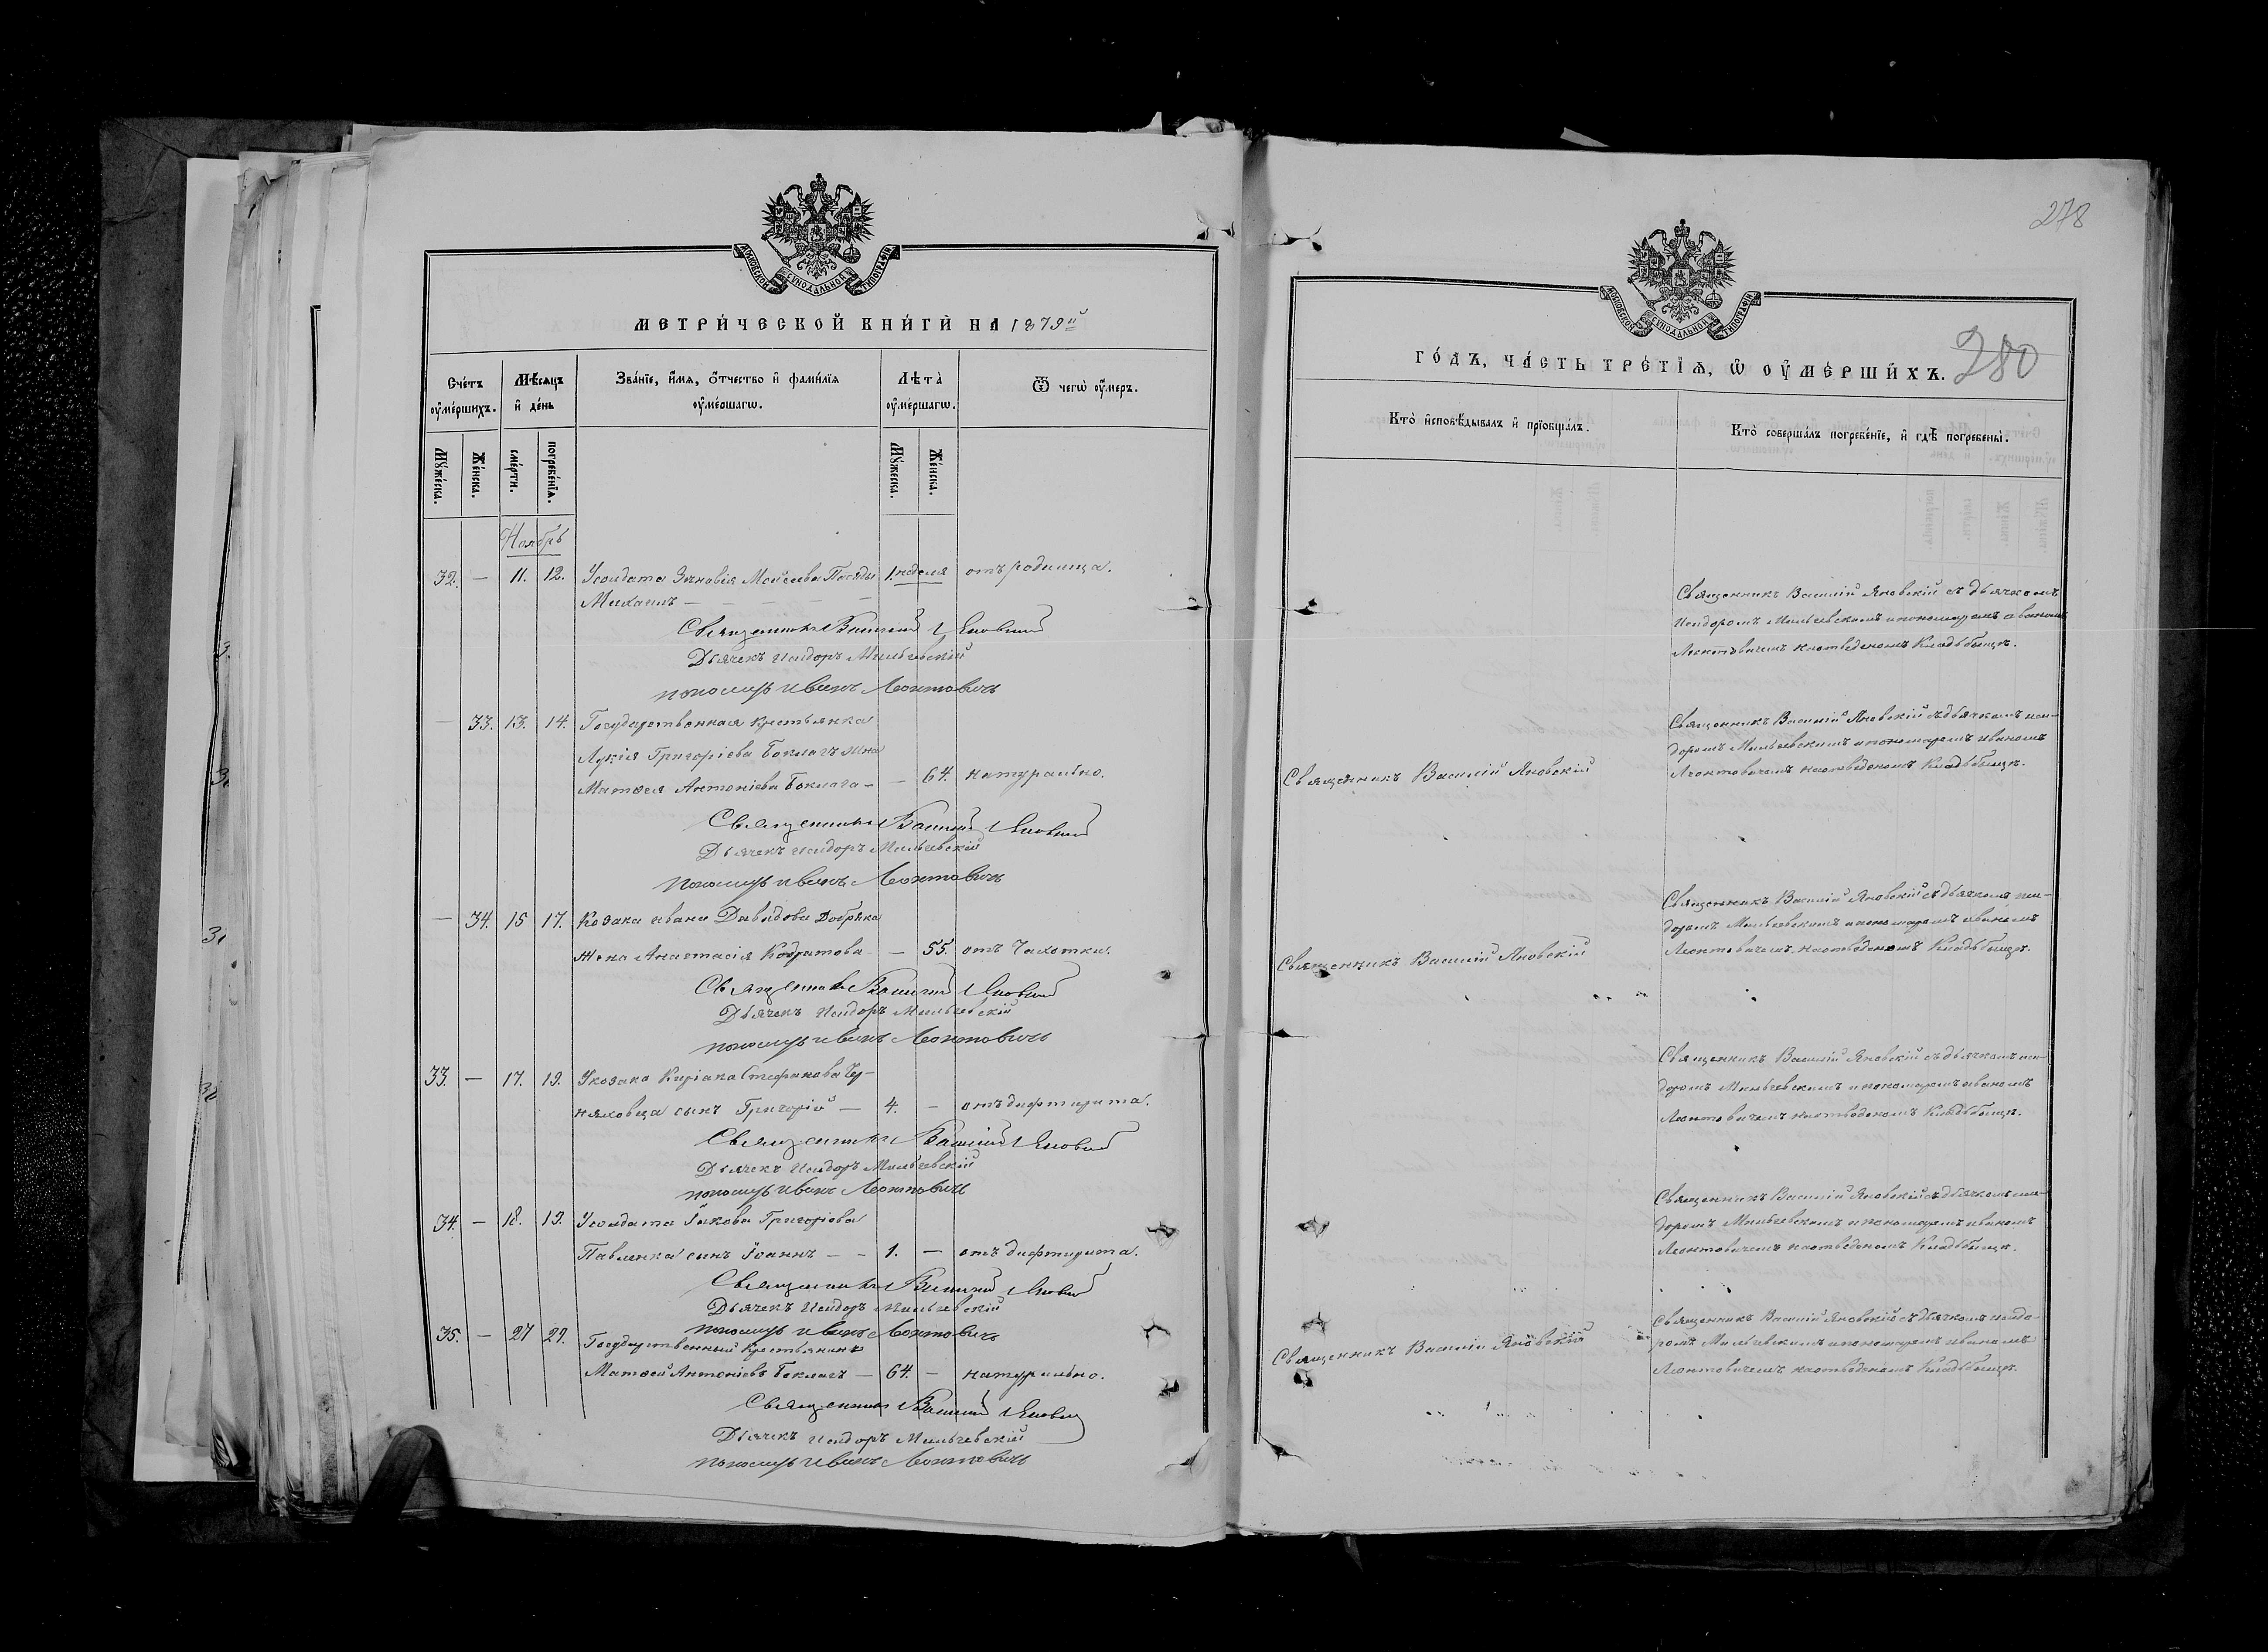 278
МОСКОВСКОЙ СѴНОДАЛЬНОЙ ТИПОГРАФІИ
МЕТРИ́ЧЕСКОЙ КНИ́ГИ НА 1879й
Сче́тъ оу҆ме́ршихъ.
Мѣ́сяцъ и҆ де́нь
Зва́нїе, и҆́мя, ѻ҆́тчество и҆ фами́лїя оу҆ме́ршагѡ.
Лѣ́та оу҆ме́ршагѡ.
Ѿ чегѡ̀ оу҆́меръ.
Мꙋ́жеска.
Же́нска.
сме́рти.
погребе́нїя.
Мꙋ́жеска.
Же́нска.
Ноябрь
32. — 11. 12. У солдата Зѣновія Моисеева 1. неделя отъ родимца.
Михаилъ — — — — —
Священникъ Василій Яновскій
Дьячекъ Исидоръ Мильчевскій
пономарь Иванъ Леонтовичъ
— 33. 13. 14. Государственная крестьянка
Лукія Григоріева Боклагъ жена
Матѳея Антоніева Боклага — — 64. натурально.
Священникъ Василій Яновскій
Дьячекъ Исидоръ Мильчевскій
Пономарь Иванъ Леонтовичъ
— 34. 15 17. Козака Ивана Давидова Добряка
жена Анастасія Кодратова — — 55. отъ Чахотки.
Священникъ Василій Яновскій
Дьячекъ Исидоръ Мильчевскій
пономарь Иванъ Леонтовичъ
33. — 17. 19. У козака Киріака Стефанова Чер-
няховца сынъ Григорій — 4. — отъ дифтирита.
Священникъ Василій Яновскій
Дьячекъ Исидоръ Мильчевскій
пономарь Иванъ Леонтовичъ
34. — 18. 19. У солдата Іякова Григоріева
Павленка сынъ Іоаннъ — — 1. — отъ дифтирита.
Священникъ Василій Яновскій
Дьячекъ Исидоръ Мильчевскій
пономарь Иванъ Леонтовичъ
35. — 27 29. Государственный крестьянинъ
Матѳей Антоніевъ Боклагъ — 64. — натурально.
Священникъ Василій Яновскій
Дьячекъ Исидоръ Мильчевскій
пономарь Иванъ Леонтовичъ
МОСКОВСКОЙ СѴНОДАЛЬНОЙ ТИПОГРАФІИ
ГО́ДЪ, ЧА́СТЬ ТРЕ́ТІѦ, Ѡ҆ ОУ҆МЕ́РШИХЪ. 280
Кто̀ и҆сповѣ́дывалъ и҆ прїобща́лъ.
Кто̀ соверша́лъ погребе́нїе, и҆ гдѣ̀ погребены̀.
Священникъ Василій Яновскій съ дьячкомъ
Исидоромъ Мильчевскимъ и пономаремъ Иваномъ
Леонтовичемъ на отведеномъ Кладбищѣ.
Священникъ Василій Яновскій
Священникъ Василій Яновскій съ дьячкомъ Иси-
доромъ Мильчевскимъ и пономаремъ Иваномъ
Леонтовичемъ на отведеномъ Кладбищѣ.
Священникъ Василій Яновскій
Священникъ Василій Яновскій съ дьячкомъ Иси-
доромъ Мильчевскимъ и пономаремъ Иваномъ
Леонтовичемъ на отведеномъ Кладбищѣ.
Священникъ Василій Яновскій съ дьячкомъ Иси-
доромъ Мильчевскимъ и пономаремъ Иваномъ
Леонтовичемъ на отведеномъ Кладбищѣ.
Священникъ Василій Яновскій съ дьячкомъ Иси-
доромъ Мильчевскимъ и пономаремъ Иваномъ
Леонтовичемъ на отведеномъ Кладбищѣ.
Священникъ Василій Яновскій
Священникъ Василій Яновскій съ дьячкомъ Исидо-
ромъ Мильчевскимъ и пономаремъ Иваномъ
Леонтовичемъ на отведеномъ Кладбищѣ.